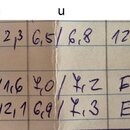 u
2,3 6,5/6,8 12
11,6 7,0/7,2 E
12,1 6,9/7,3 E